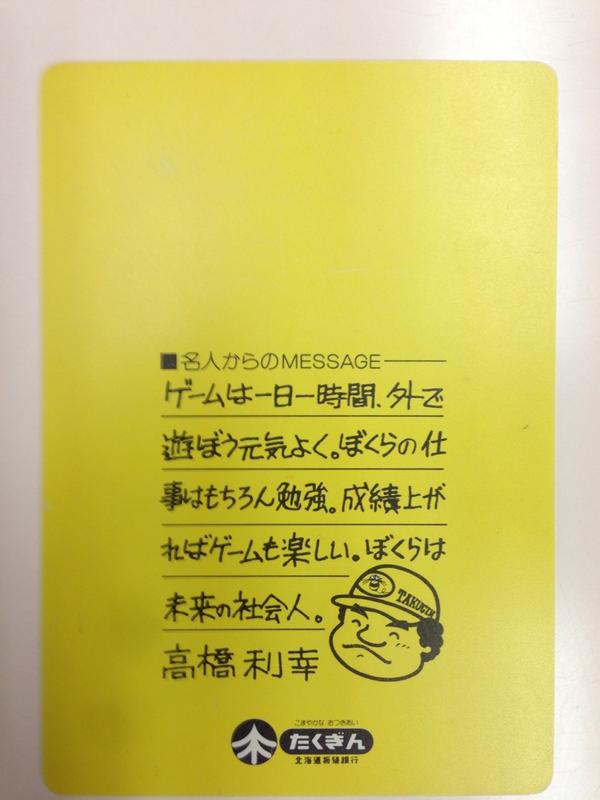 ■名人からのMESSAGE
ゲームは一日一時間、外で
遊ぼう元気よく。ぼくらの仕
事はもちろん勉強。成績上が
ればゲームも楽しい。ぼくらは
未来の社会人。
TAKUGIN
高橋利幸
こまやかな おつきあい
たくぎん
北海道拓殖銀行